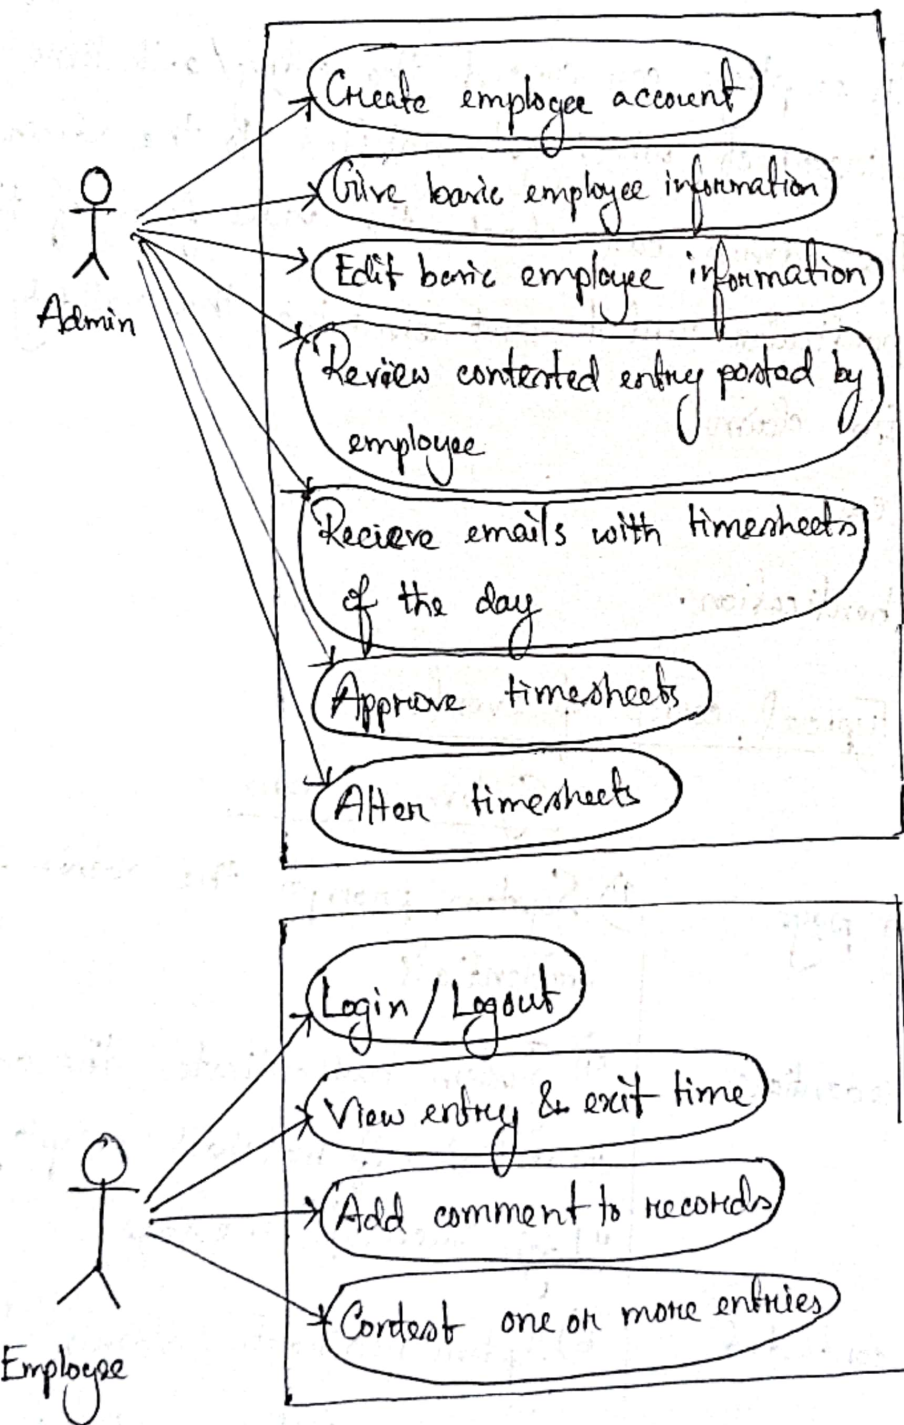 Create employee account
Give basic employee information
Edit basic employee information
Admin
Review contested entry posted by
employee
Recieve emails with timesheets
of the day
Approve timesheets
Alter timesheets
Login / Logout
View entry & exit time
Add comment to records
Contest one or more entries
Employee